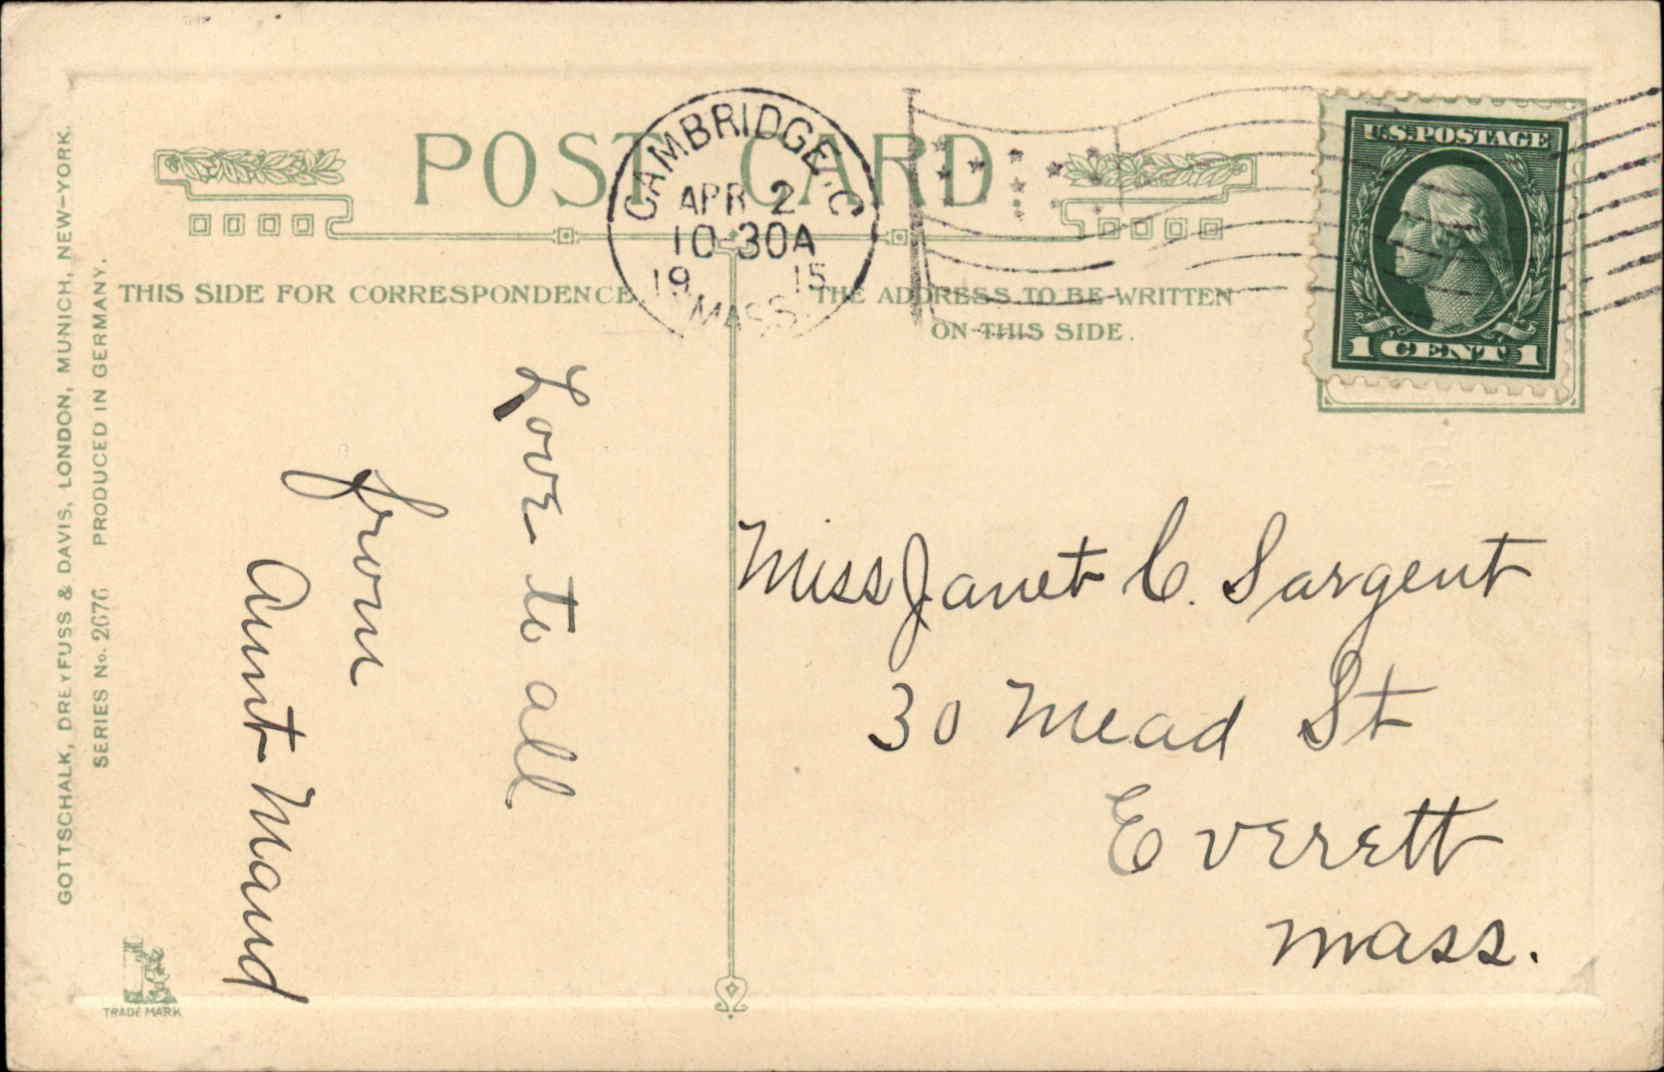 POST CARD
CAMBRIDGE, C
APR 2
10-30A
19 15
MASS.
U.S. POSTAGE
1 CENT 1
THIS SIDE FOR CORRESPONDENCE.
THE ADDRESS TO BE WRITTEN
ON THIS SIDE.
Love to all
from
Aunt Maud
Miss Janet C. Sargent
30 Mead St
Everett
Mass.
GOTTSCHALK, DREYFUSS & DAVIS, LONDON, MUNICH, NEW-YORK.
SERIES No. 2676 PRODUCED IN GERMANY.
TRADE MARK